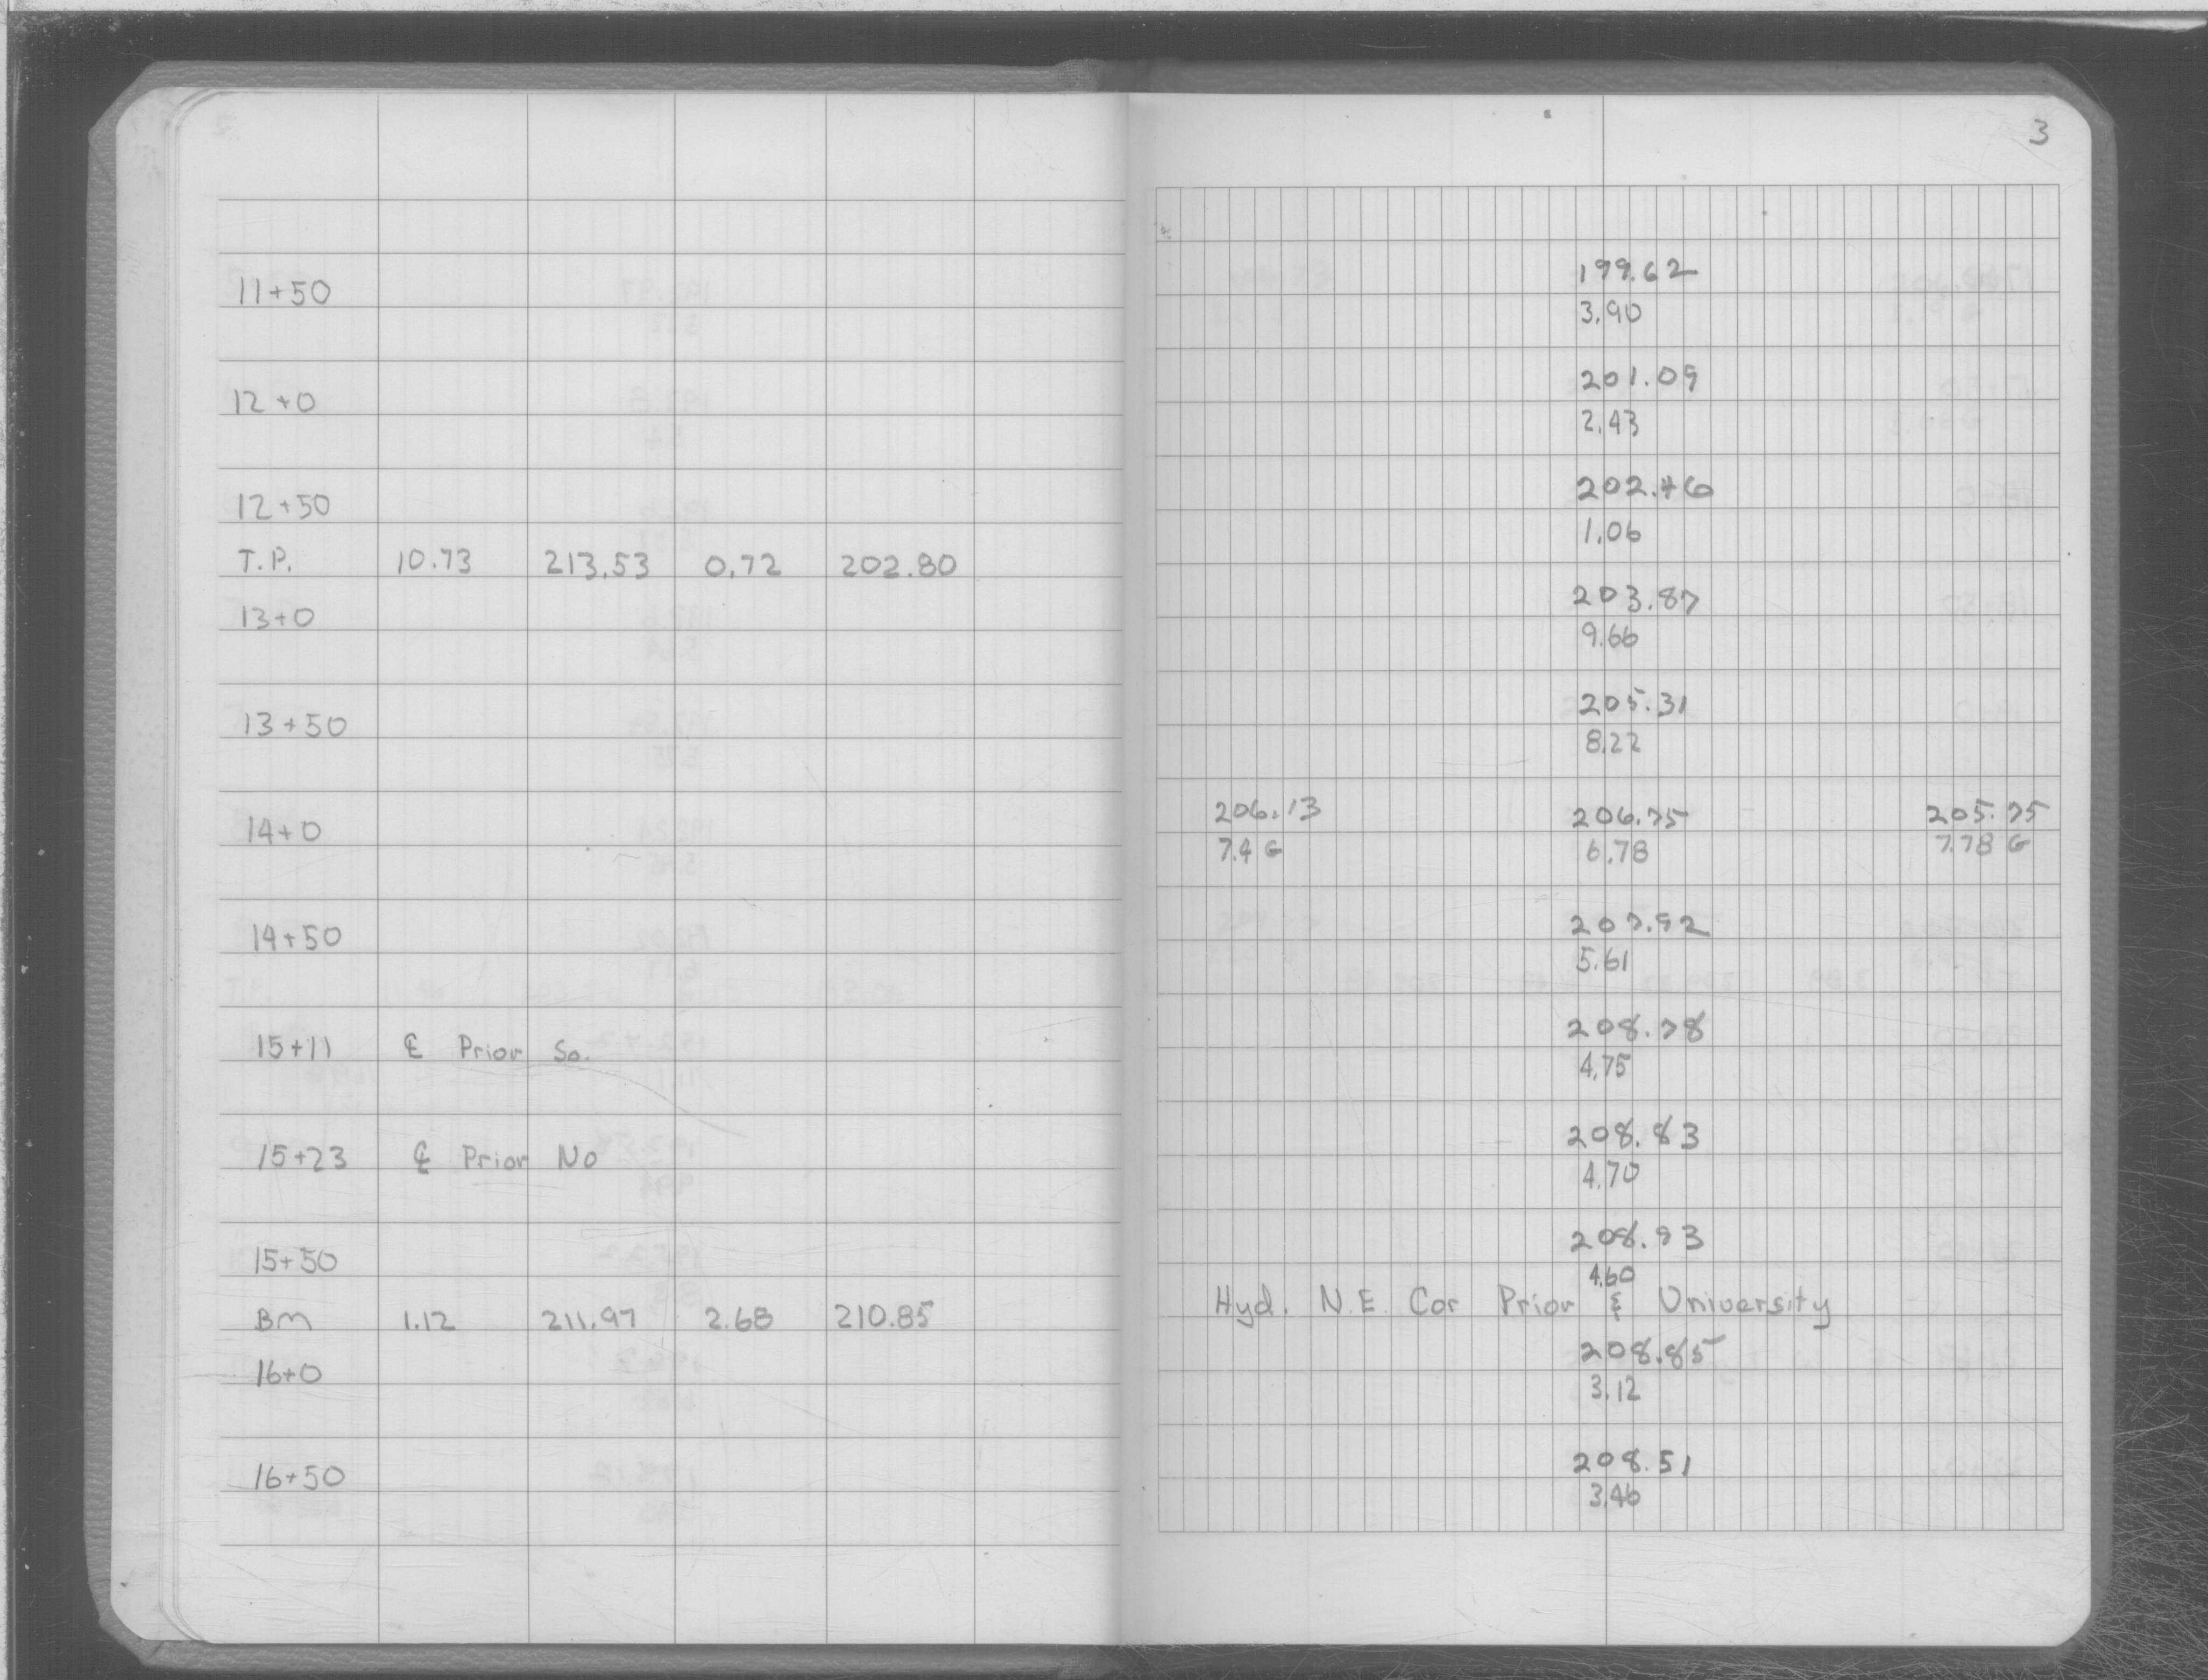 3
11+50 199.62
3.90
12+0 201.09
2.43
12+50 202.46
1.06
T.P. 10.73 213.53 0.72 202.80
13+0 203.87
9.66
13+50 205.31
8.22
14+0 206.13 206.75 205.75
7.4 G 6.78 7.78 G
14+50 207.92
5.61
15+11 ℄ Prior So. 208.78
4.75
15+23 ℄ Prior No 208.83
4.70
15+50 208.93
4.60
BM 1.12 211.97 2.68 210.85 Hyd. N.E. Cor Prior & University
16+0 208.85
3.12
16+50 208.51
3.46